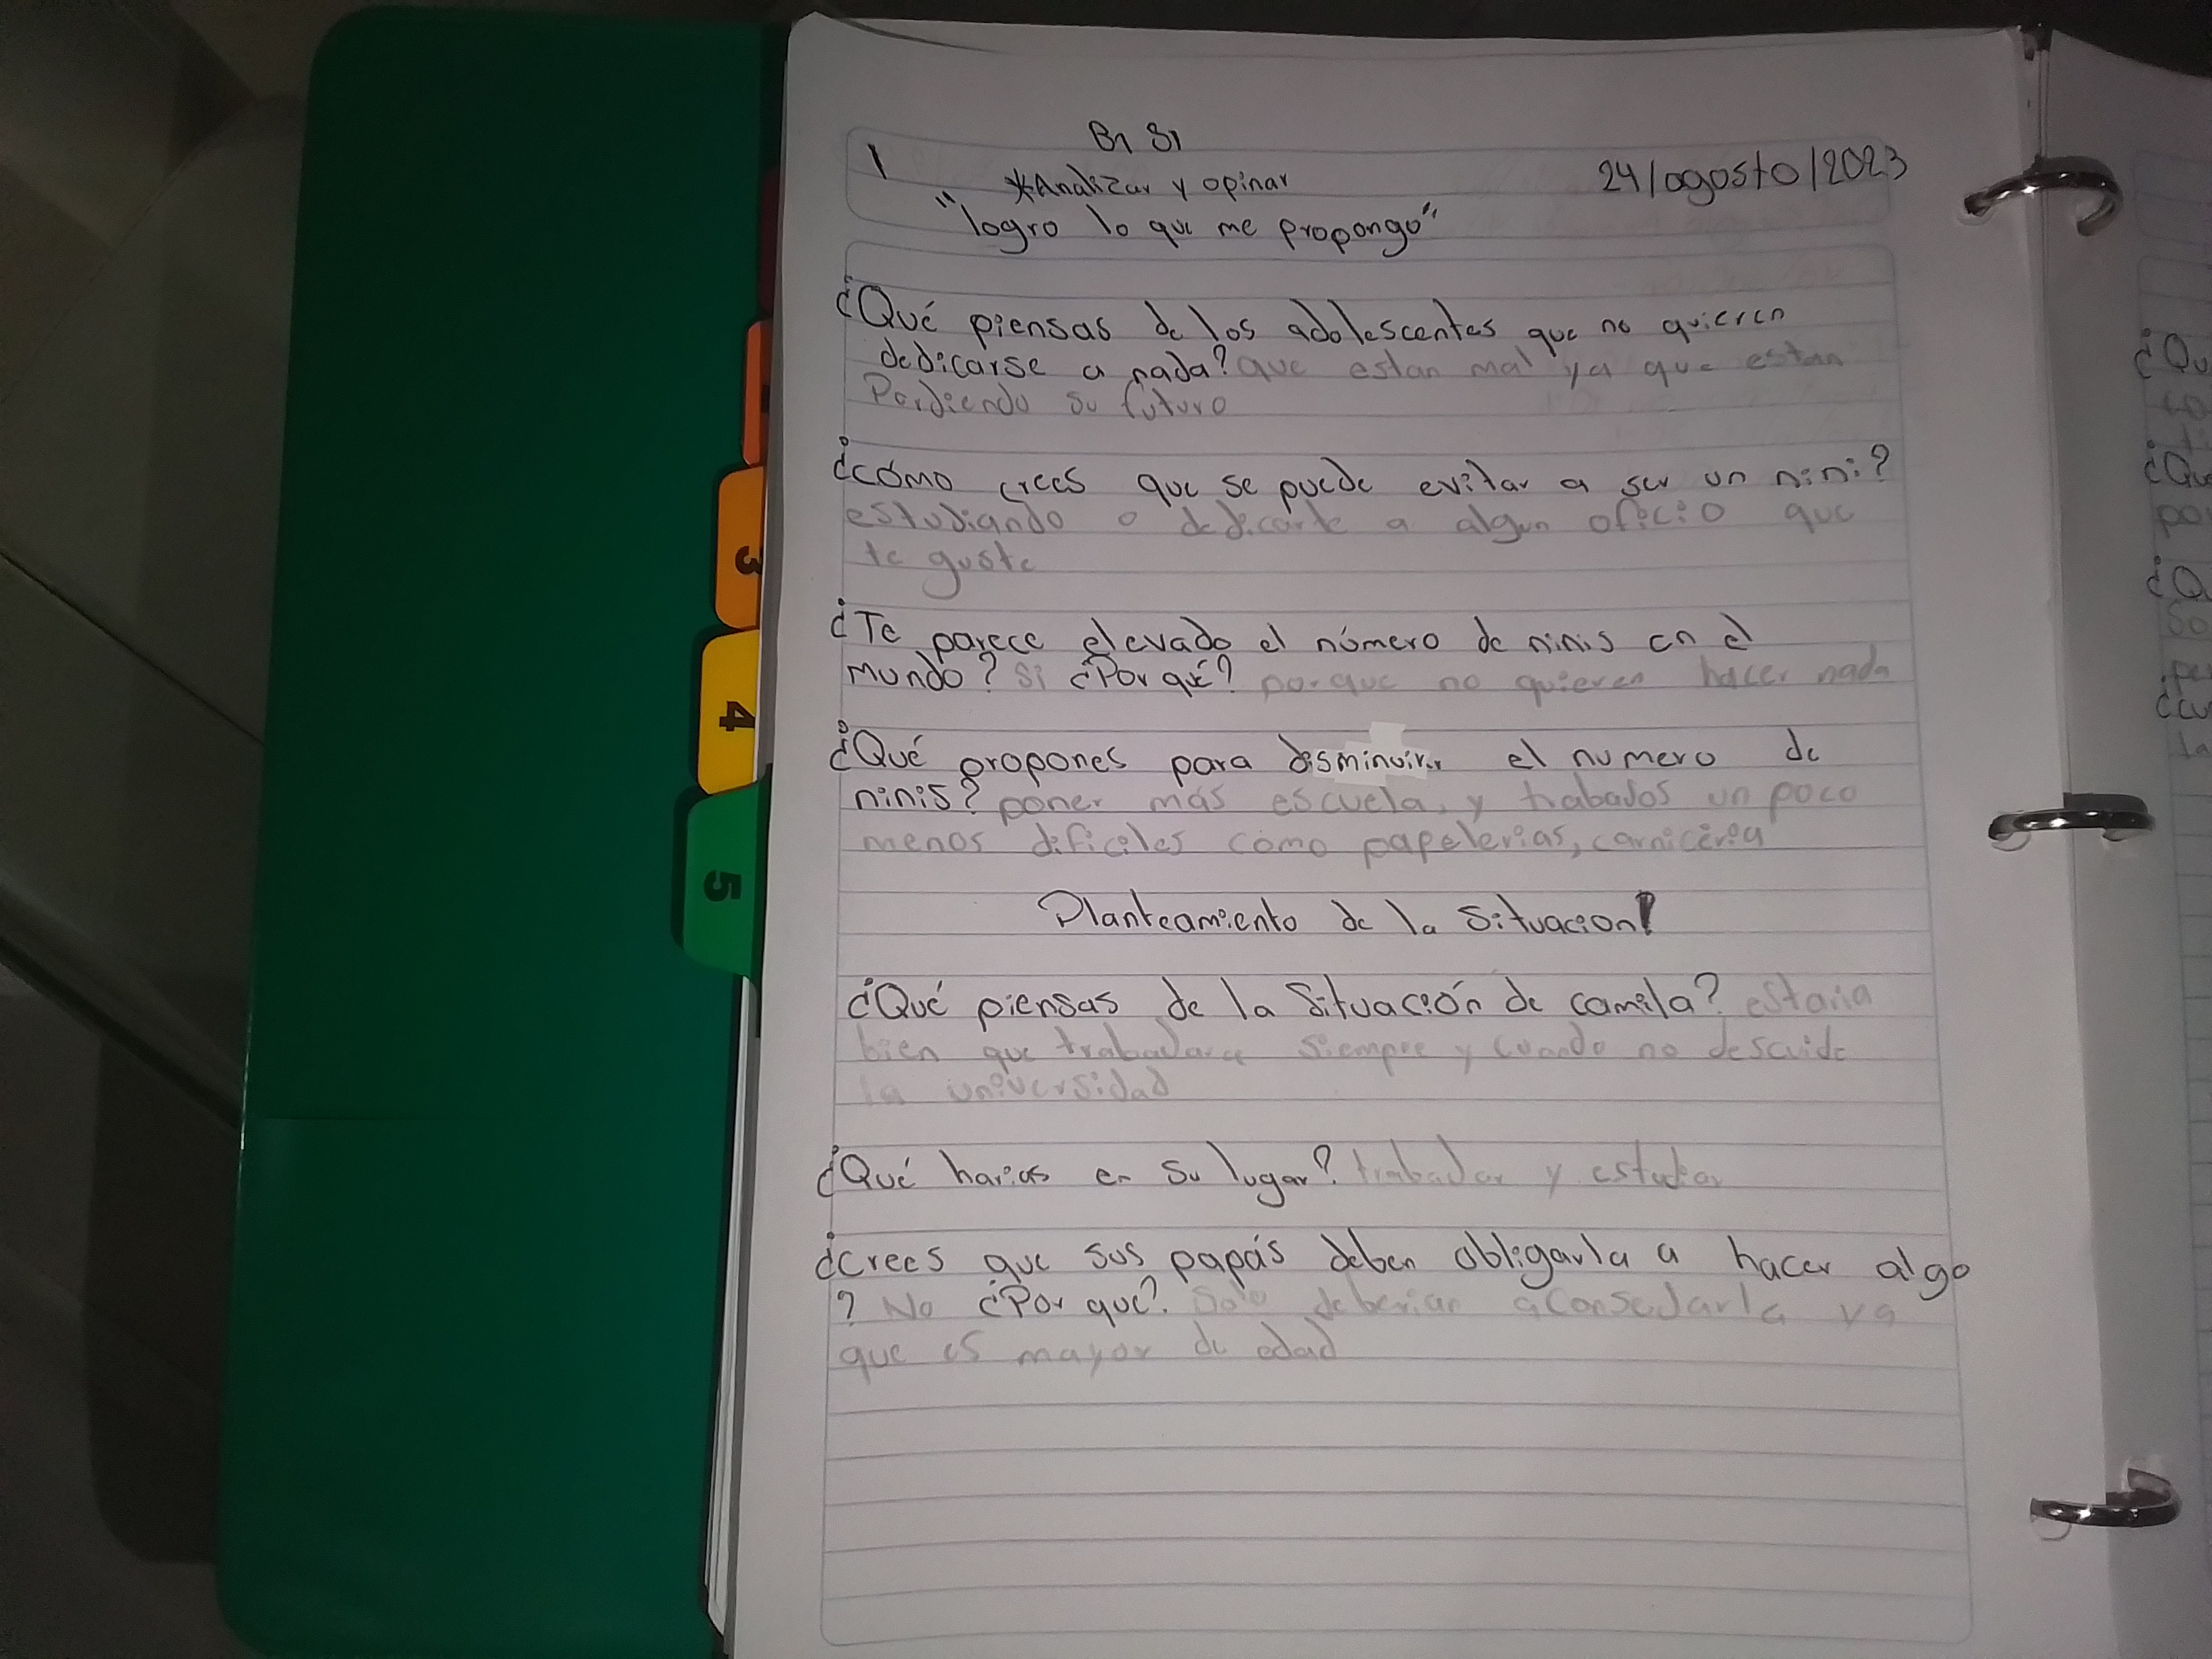 B1 S1
1
*Analizar y opinar
24/agosto/2023
"logro lo que me propongo"
¿Qué piensas de los adolescentes que no quieren
dedicarse a nada? que estan mal ya que estan
Perdiendo su futuro
¿cómo crees que se puede evitar a ser un nini?
estudiando o dedicarte a algun oficio que
te guste
¿Te parece elevado el número de ninis en el
mundo? Si ¿Por qué? porque no quieren hacer nada
¿Qué propones para disminuir el numero de
ninis? poner más escuela, y trabajos un poco
menos dificiles como papelerias, carniceria
Planteamiento de la Situacion
¿Qué piensas de la Situación de camila? estaria
bien que trabajara siempre y cuando no descuide
la universidad
¿Qué harias en su lugar? trabajar y estudiar
¿Crees que sus papás deben obligarla a hacer algo
? No ¿Por qué? Solo deberian aconsejarla ya
que es mayor de edad
3
4
5
¿Qu
¿Que
po
¿Q
so
¿Cu
la